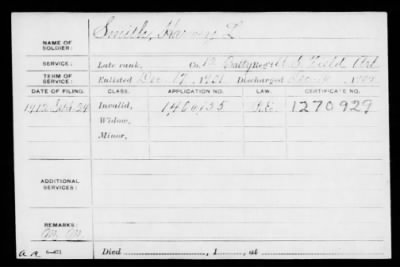 Smith, Harvey L.
NAME OF SOLDIER:
SERVICE: Late rank, Co. 12 Batty U.S. Field Art.
TERM OF SERVICE: Enlisted Dec. 17, 1901 Discharged Dec. 16, 1904
DATE OF FILING. CLASS. APPLICATION NO. LAW. CERTIFICATE NO.
1912 Sept 24 Invalid, 1406435 1270929
Widow,
Minor,
ADDITIONAL SERVICES:
REMARKS:
Died , 1 , at